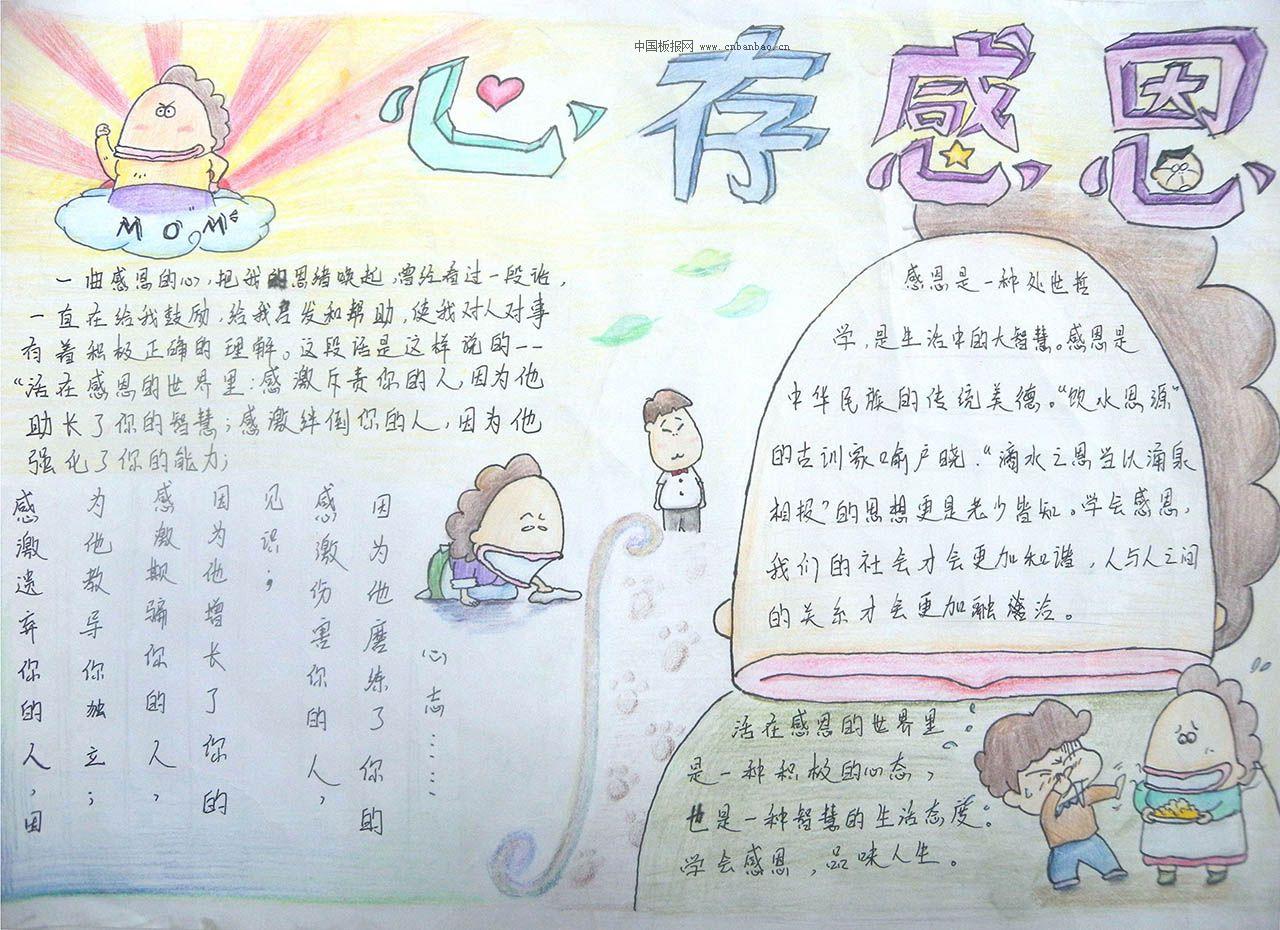 中国板报网 www.cnbanbao.cn
心存感恩
MOM
一曲感恩的心，把我的思绪唤起，曾经看过一段话，
一直在给我鼓励，给我启发和帮助，使我对人对事
有着积极正确的理解。这段话是这样说的--
“活在感恩的世界里：感激斥责你的人，因为他
助长了你的智慧；感激绊倒你的人，因为他
强化了你的能力；
感激遗弃你的人，因
为他教导你独立；
感激欺骗你的人，
因为他增长了你的
见识；
感激伤害你的人，
因为他磨练了你的
心志……
感恩是一种处世哲
学，是生活中的大智慧。感恩是
中华民族的传统美德。“饮水思源”
的古训家喻户晓，“滴水之恩当以涌泉
相报”的思想更是老少皆知。学会感恩，
我们的社会才会更加和谐，人与人之间
的关系才会更加融洽。
活在感恩的世界里：
是一种积极的心态，
也是一种智慧的生活态度。
学会感恩，品味人生。